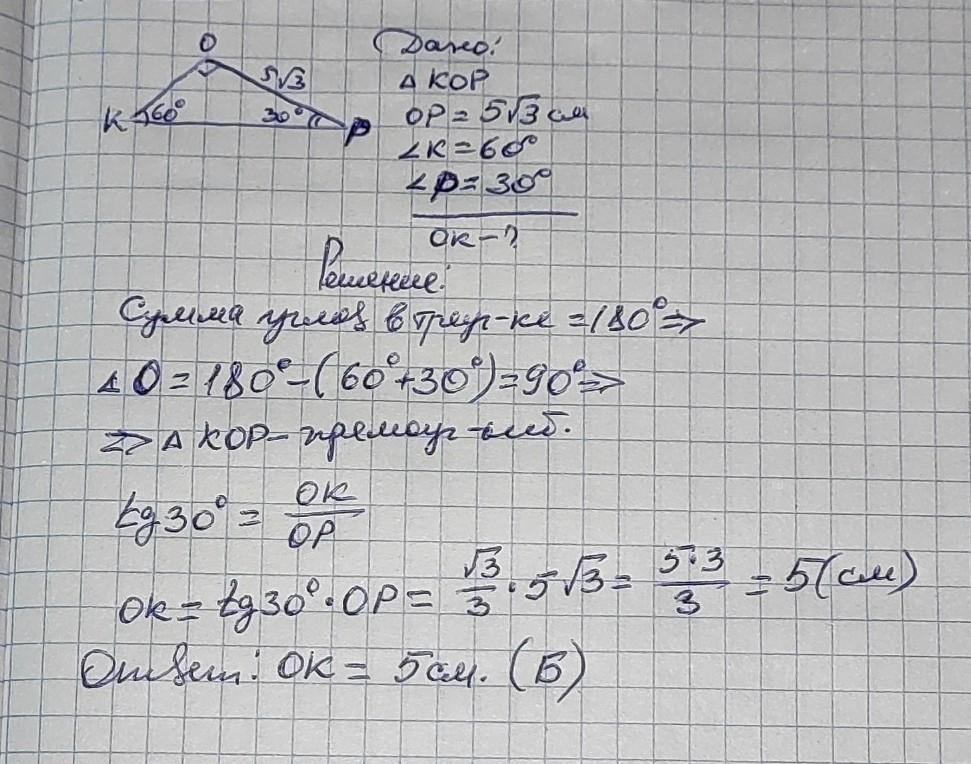 O
5√3
K 60° 30° P
Дано:
△ KOP
OP = 5√3 см
∠K = 60°
∠P = 30°
OK - ?
Решение:
Сумма углов в треуг-ке = 180° ⇒
∠O = 180° - (60° + 30°) = 90° ⇒
⇒ △ KOP - прямоуг-ный.
tg 30° = OK/OP
OK = tg 30° · OP = √3/3 · 5√3 = 5·3/3 = 5 (см)
Ответ: OK = 5 см. (Б)